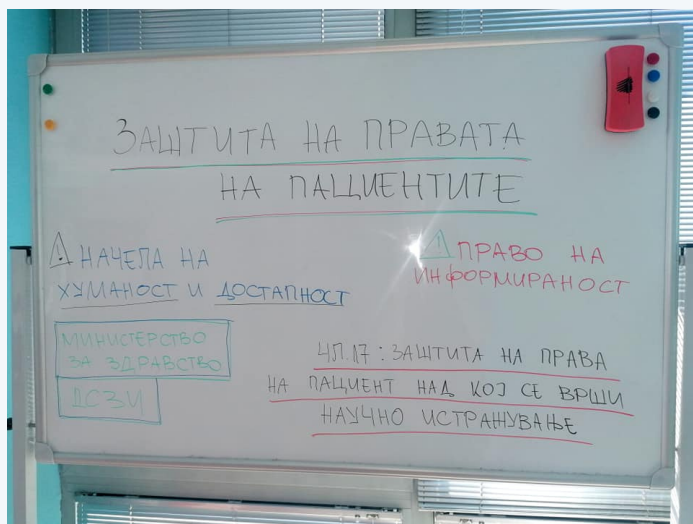 ЗАШТИТА НА ПРАВАТА
НА ПАЦИЕНТИТЕ
НАЧЕЛА НА
ХУМАНОСТ И ДОСТАПНОСТ
! ПРАВО НА
ИНФОРМИРАНОСТ
МИНИСТЕРСТВО
ЗА ЗДРАВСТВО
ДСЗИ
ЧЛ.17: ЗАШТИТА НА ПРАВА
НА ПАЦИЕНТ НАД КОЈ СЕ ВРШИ
НАУЧНО ИСТРАЖУВАЊЕ